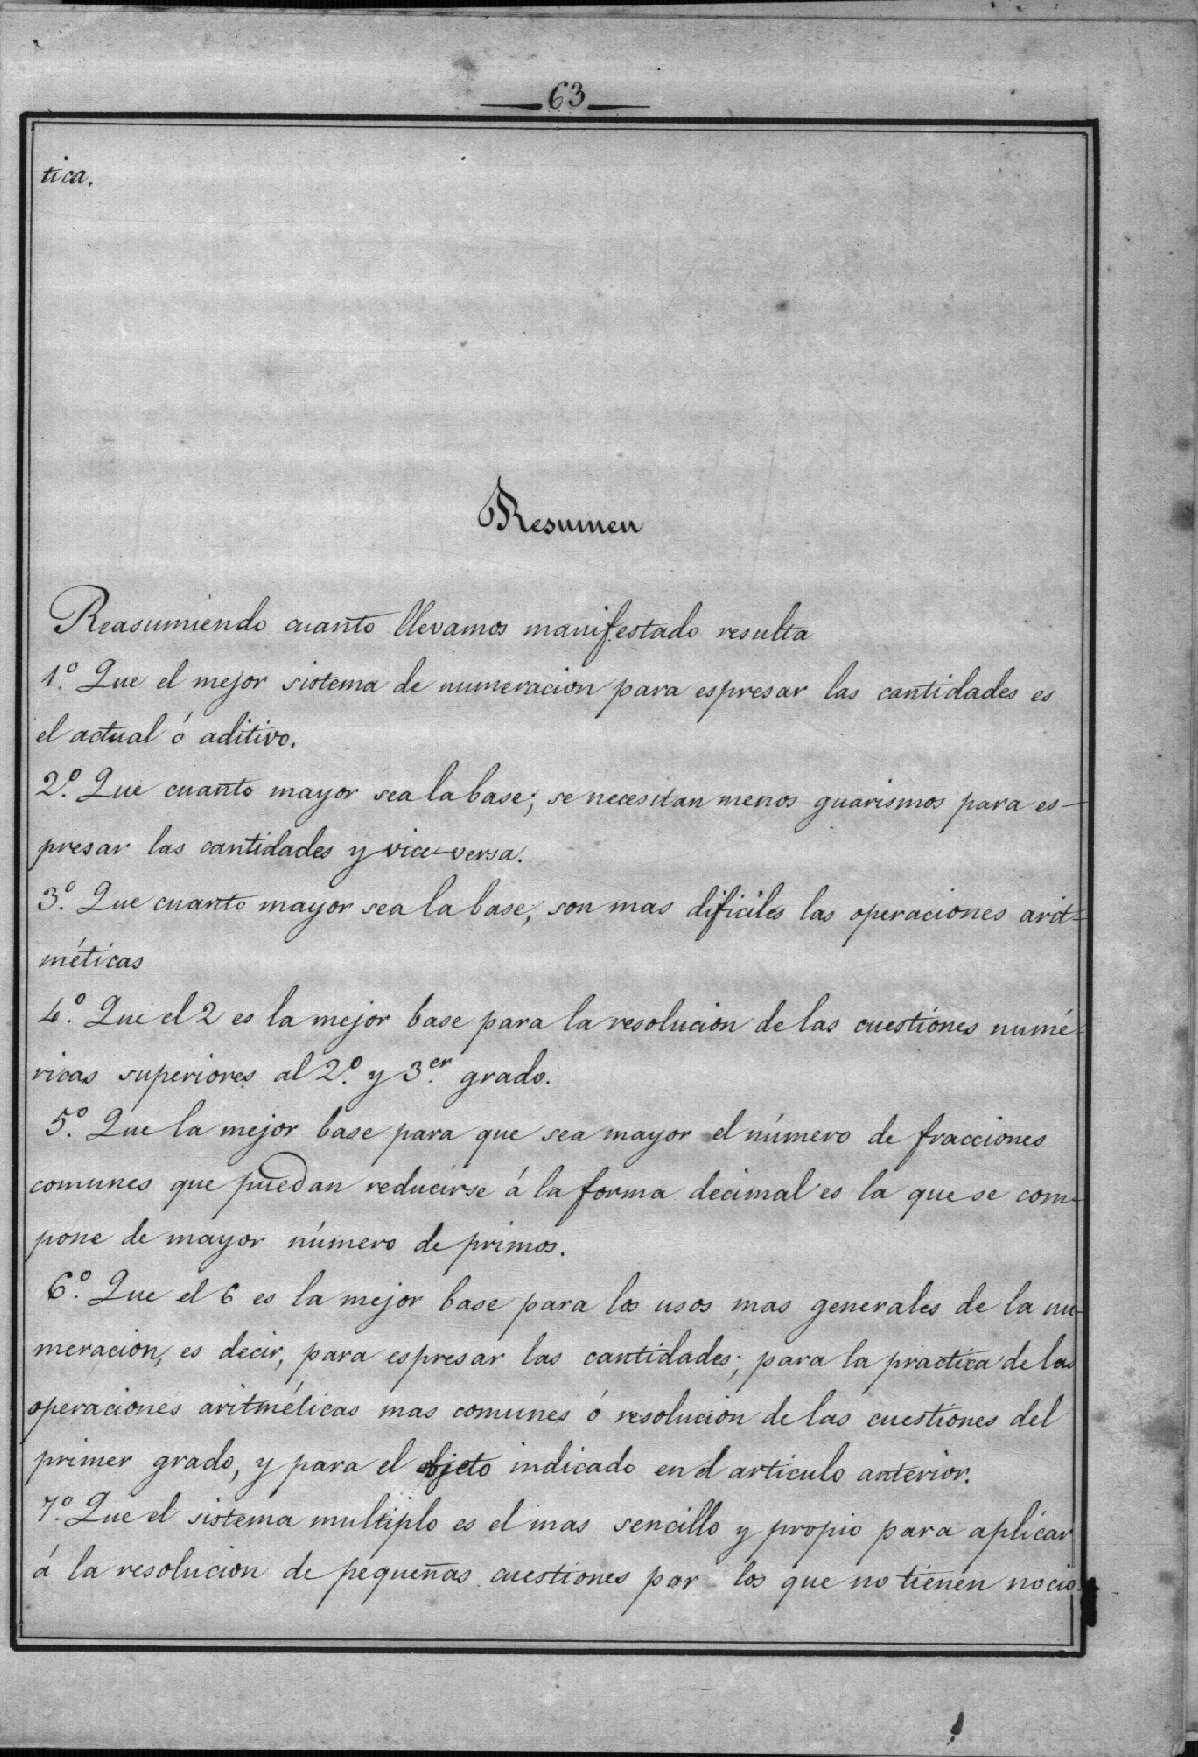 63
tica.
Resumen
Reasumiendo cuanto llevamos manifestado resulta
1.º Que el mejor sistema de numeracion para espresar las cantidades es
el actual ó aditivo.
2.º Que cuanto mayor sea la base; se necesitan menos guarismos para es-
presar las cantidades y vice-versa.
3.º Que cuanto mayor sea la base, son mas dificiles las operaciones arit-
méticas
4.º Que el 2 es la mejor base para la resolucion de las cuestiones numé-
ricas superiores al 2.º y 3.er grado.
5.º Que la mejor base para que sea mayor el número de fracciones
comunes que puedan reducirse á la forma decimal es la que se com-
pone de mayor número de primos.
6.º Que el 6 es la mejor base para los usos mas generales de la nu-
meracion, es decir, para espresar las cantidades; para la practica de las
operaciones aritméticas mas comunes ó resolucion de las cuestiones del
primer grado, y para el objeto indicado en el articulo anterior.
7.º Que el sistema multiplo es el mas sencillo y propio para aplicar
á la resolucion de pequeñas cuestiones por los que no tienen nocio-